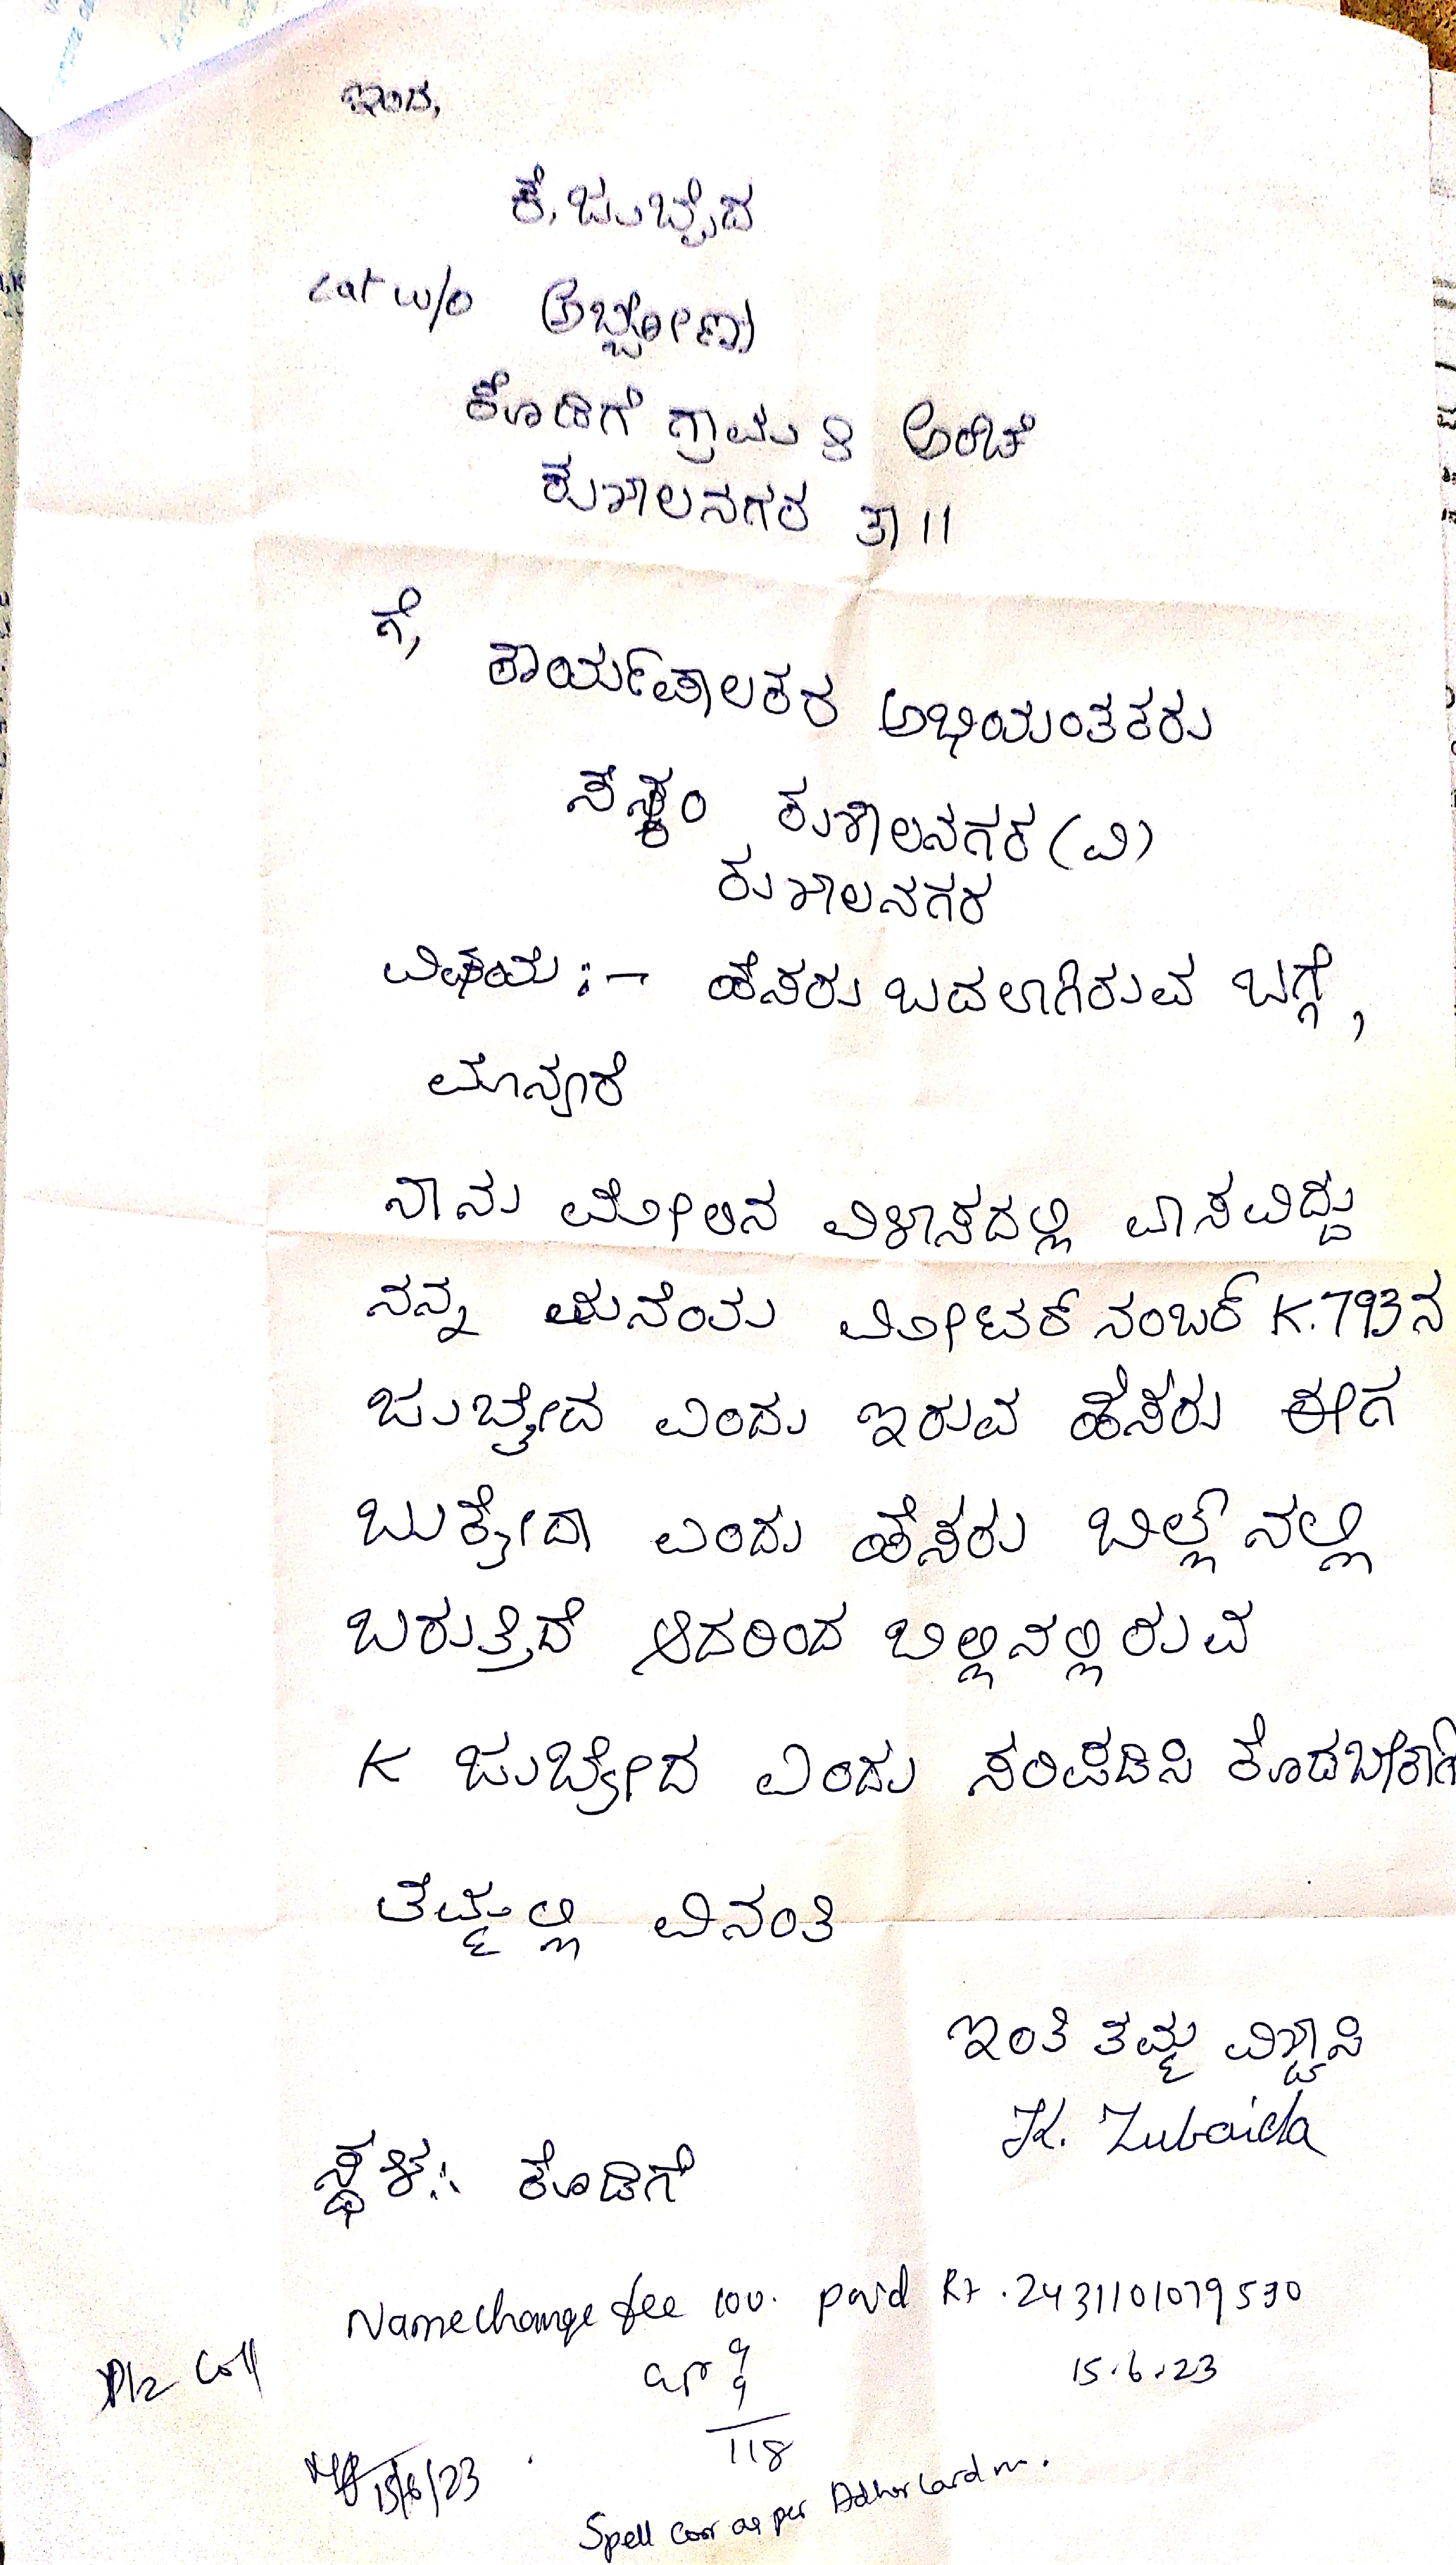 ಇಂದ,
ಕೆ. ಜುಬೈದ
Lat w/o
ಕೊಡಗೆ ಗ್ರಾಮ & ಅಂಚೆ
ಕುಶಾಲನಗರ ತಾ||
ಗೆ,
ಕಾರ್ಯಪಾಲಕರ ಅಭಿಯಂತಕರು
ಸೆಸ್ಕಂ ಕುಶಾಲನಗರ (ವಿ)
ಕುಶಾಲನಗರ
ವಿಷಯ :- ಹೆಸರು ಬದಲಾಗಿರುವ ಬಗ್ಗೆ,
ಮಾನ್ಯರೆ
ನಾನು ಮೇಲಿನ ವಿಳಾಸದಲ್ಲಿ ವಾಸವಿದ್ದು
ನನ್ನ ಮನೆಯ ಮೀಟರ್ ನಂಬರ್ K.793 ನ
ಜುಬ್ಯೇದ ಎಂದು ಇರುವ ಹೆಸರು ಈಗ
ಬುಕ್ಯೇದಾ ಎಂದು ಹೆಸರು ಬಿಲ್ಲ್ ನಲ್ಲಿ
ಬರುತ್ತಿದೆ ಆದರಿಂದ ಬಿಲ್ಲಿನಲ್ಲಿರುವ
K ಜುಬ್ಯೇದ ಎಂದು ಸರಿಪಡಿಸಿ ಕೊಡಬೇಕಾಗಿ
ತಮ್ಮಲ್ಲಿ ವಿನಂತಿ
ಇಂತಿ ತಮ್ಮ ವಿಶ್ವಾಸಿ
K. Zubaida
ಸ್ಥಳ:. ಕೊಡಗೆ
Name change fee 100. paid Rt. 2431101079530
9
15.6.23
Plz Coll
9
118
15/6/23
Spell corr as per Adhar Card